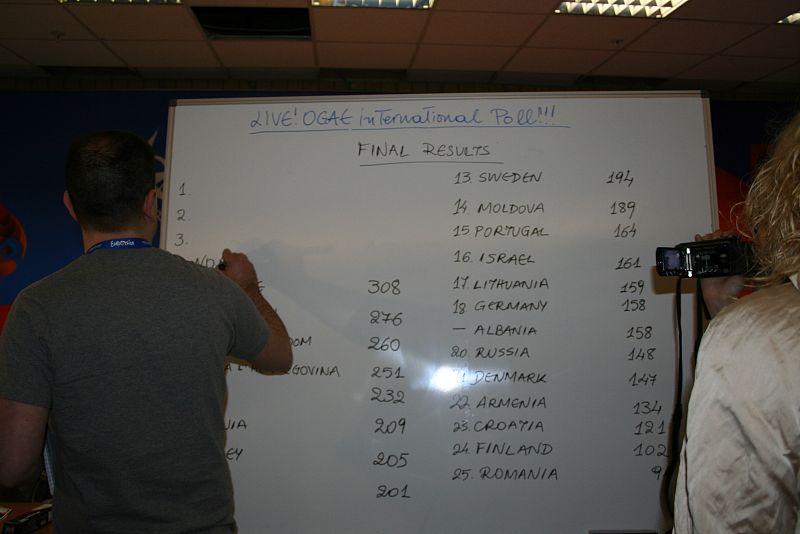 LIVE! OGAE international Poll!!!
FINAL RESULTS
1.
2.
3.
308
276
260
HERZEGOVINA 251
232
209
205
201
13. SWEDEN 194
14. MOLDOVA 189
15 PORTUGAL 164
16. ISRAEL 161
17. LITHUANIA 159
18. GERMANY 158
— ALBANIA 158
20. RUSSIA 148
21 DENMARK 147
22. ARMENIA 134
23. CROATIA 121
24. FINLAND 102
25. ROMANIA 9